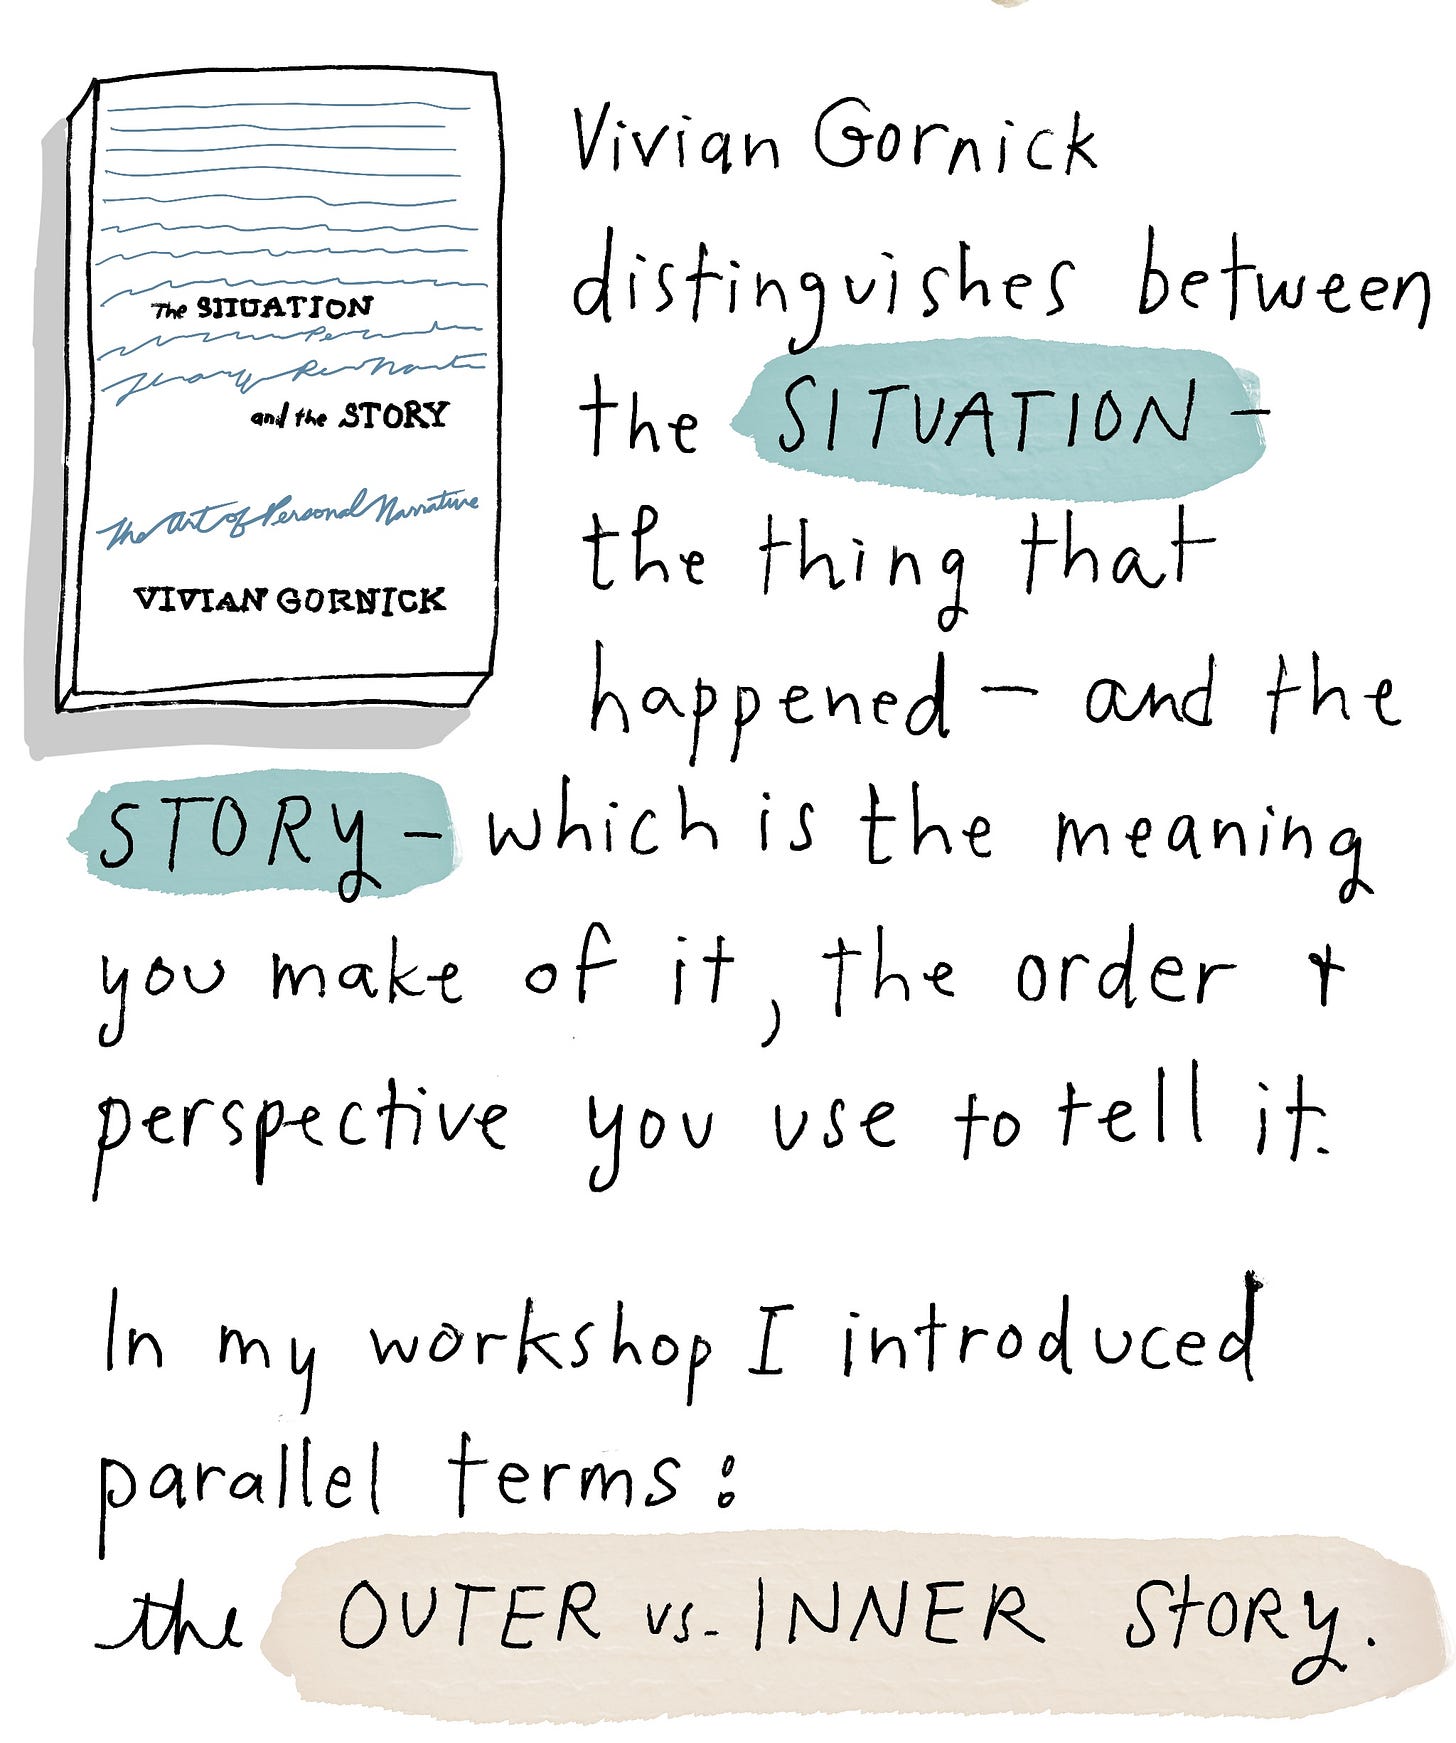 The SITUATION
and the STORY
The Art of Personal Narrative
VIVIAN GORNICK
Vivian Gornick
distinguishes between
the SITUATION -
the thing that
happened - and the
STORY - which is the meaning
you make of it, the order +
perspective you use to tell it.
In my workshop I introduced
parallel terms:
the OUTER vs. INNER StORY.